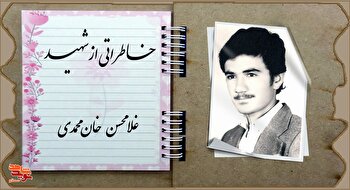 خاطراتی از شهید
غلامحسن خان‌محمدی